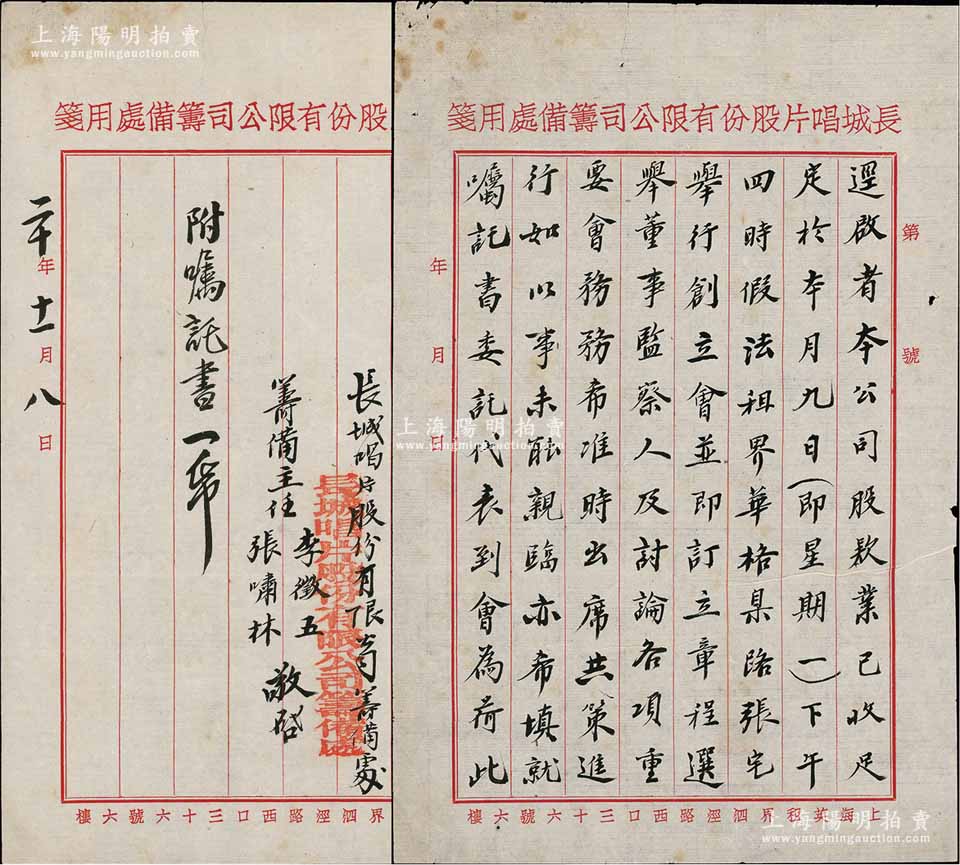 長城唱片股份有限公司籌備處用箋
第 號
逕啟者本公司股款業已收足
定於本月九日(即星期一)下午
四時假法租界華格臬路張宅
舉行創立會並即訂立章程選
舉董事監察人及討論各項重
要會務務希准時出席共策進
行如以事未能親臨亦希填就
囑託書委託代表到會為荷此
年 月 日
上海英租界泗涇路西口三十六號六樓
股份有限公司籌備處用箋
長城唱片股份有限公司籌備處
長城唱片股份有限公司籌備處
籌備主任 李徵五
張嘯林 敬啟
附囑託書一帋
二十年十一月八日
界泗涇路西口三十六號六樓
上海陽明拍賣
www.yangmingauction.com
上海陽明拍賣
www.yangmingauction.com
上海陽明拍賣
www.yangmingauction.com